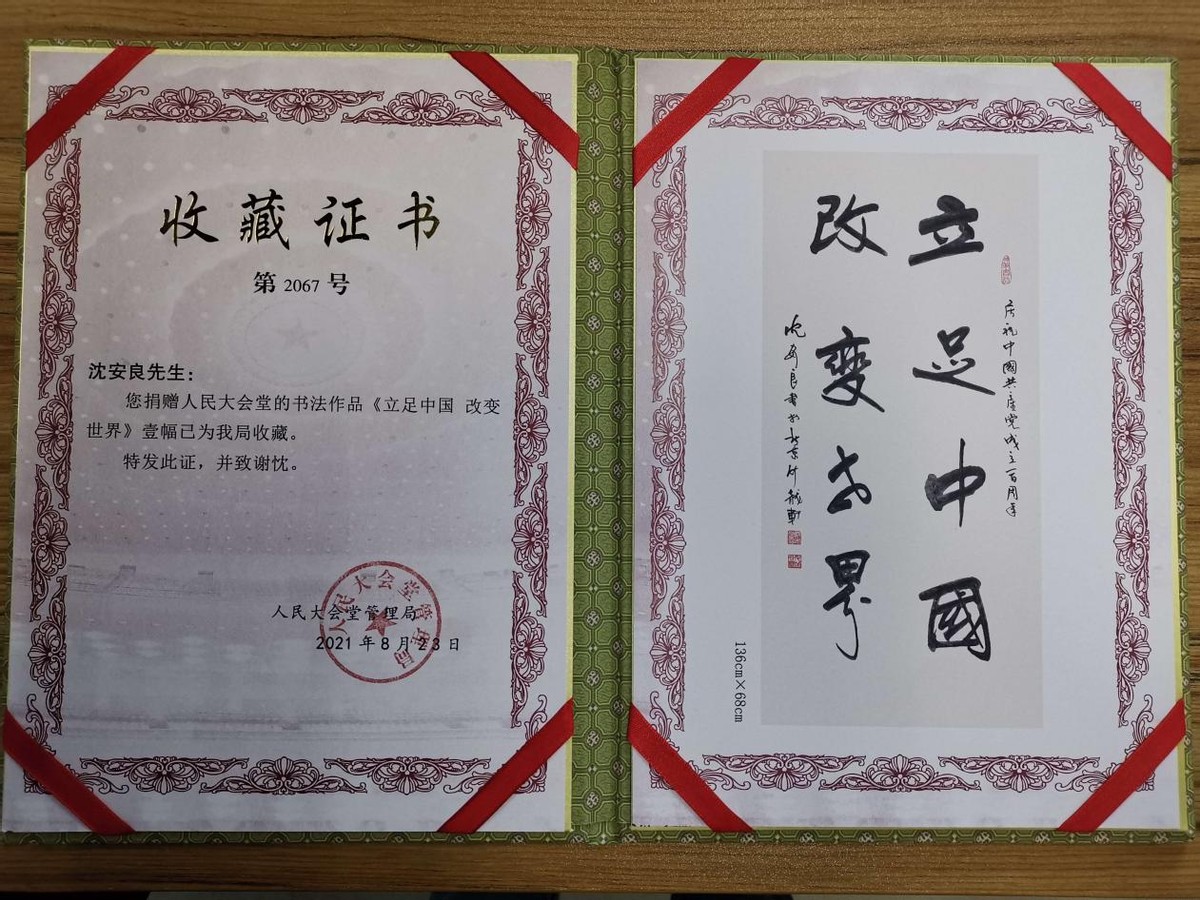 收藏证书
第 2067 号
沈安良先生：
您捐赠人民大会堂的书法作品《立足中国 改变
世界》壹幅已为我局收藏。
特发此证，并致谢忱。
人民大会堂管理局
2021 年 8 月 23 日
人民大会堂管理局
庆祝中國共產党成立百周年
立足中國
改变世界
沈安良書於北京
136cm×68cm